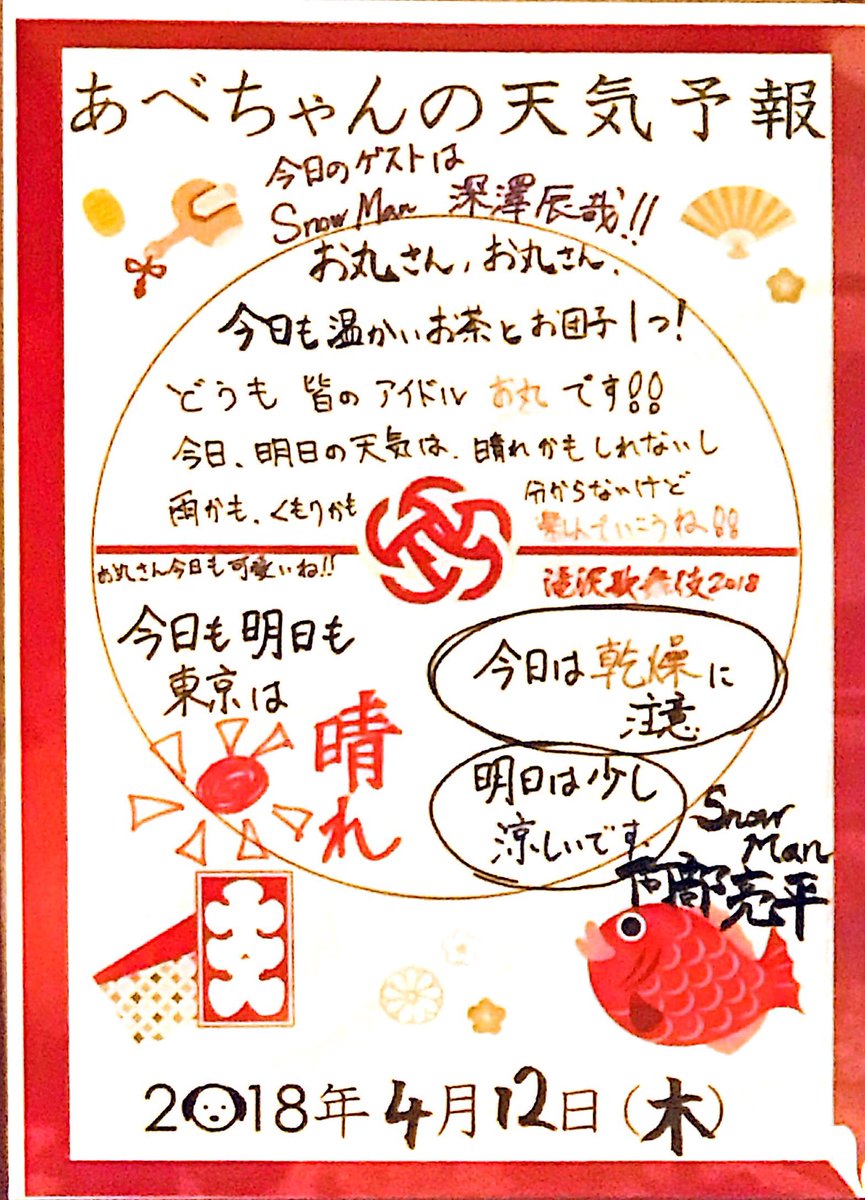 あべちゃんの天気予報
今日のゲストは
Snow Man 深澤辰哉!!
お丸さん、お丸さん、
今日も温かいお茶とお団子1つ!
どうも 皆のアイドル お丸です!!
今日、明日の天気は、晴れかもしれないし
雨かも、くもりかも
分からないけど
楽しんでいこうね!!
お丸さん今日も可愛いね!!
滝沢歌舞伎2018
今日も明日も
東京は
晴れ
今日は乾燥に
注意
明日は少し
涼しいです。
Snow
Man
阿部亮平
大入
2018年4月12日(木)